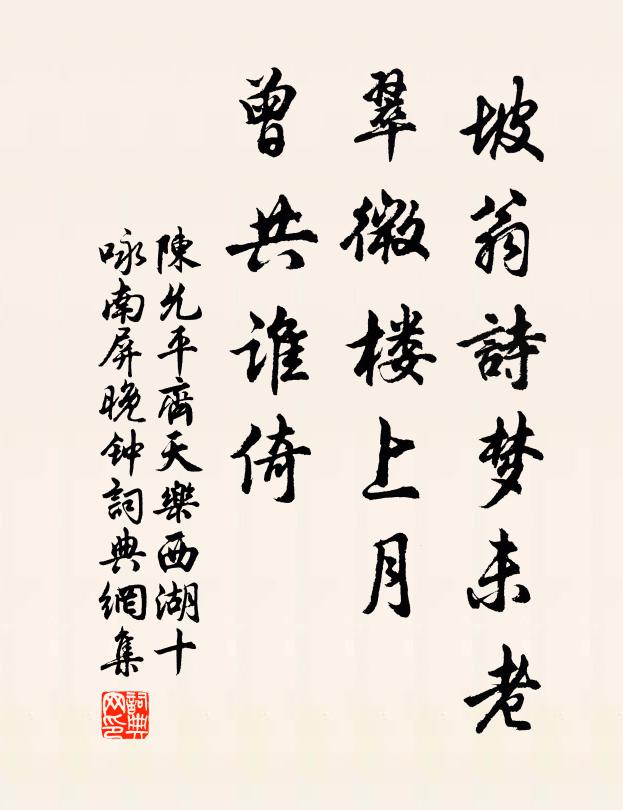 坡翁詩梦未老
翠微楼上月
曾共谁倚
陳允平齊天樂西湖十
咏南屏晚钟詞典網集
詞典网印